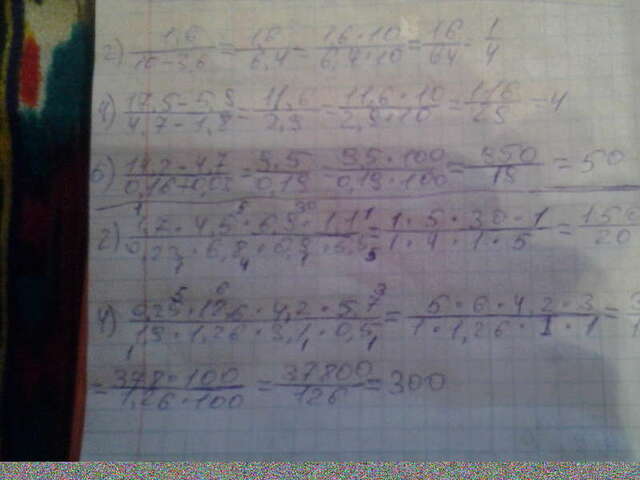 2) 1,6 / 10 - 3,6 = 16 / 6,4 = 1,6 · 10 / 6,4 · 10 = 16 / 64 = 1 / 4
4) 17,5 - 5,9 / 4,7 - 1,8 = 11,6 / 2,9 = 11,6 · 10 / 2,9 · 10 = 116 / 29 = 4
6) 14,2 - 4,7 / 0,16 + 0,03 = 9,5 / 0,19 = 9,5 · 100 / 0,19 · 100 = 950 / 19 = 50
2) 1,7 · 4,5 · 6,9 · 1,1 / 0,23 · 6,8 · 0,9 · 5,5 = 1 · 5 · 30 · 1 / 1 · 4 · 1 · 5 = 150 / 20
4) · 4,2 · / · 1,26 · 3,1 · 0,5 = 5 · 6 · 4,2 · 3 / 1 · 1,26 · 1 · 1 =
= 378 · 100 / 1,26 · 100 = 37800 / 126 = 300